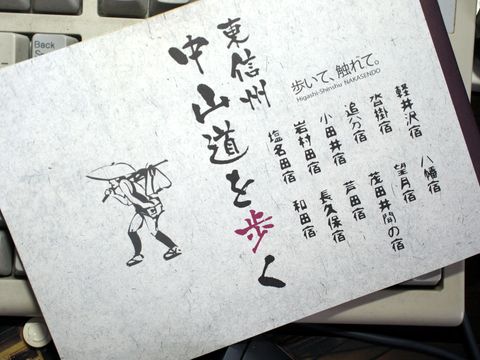 東信州
中山道を歩く
歩いて、触れて。
Higashi-Shinshu NAKASENDO
軽井沢宿
沓掛宿
追分宿
小田井宿
岩村田宿
塩名田宿
八幡宿
望月宿
茂田井間の宿
芦田宿
長久保宿
和田宿
Back